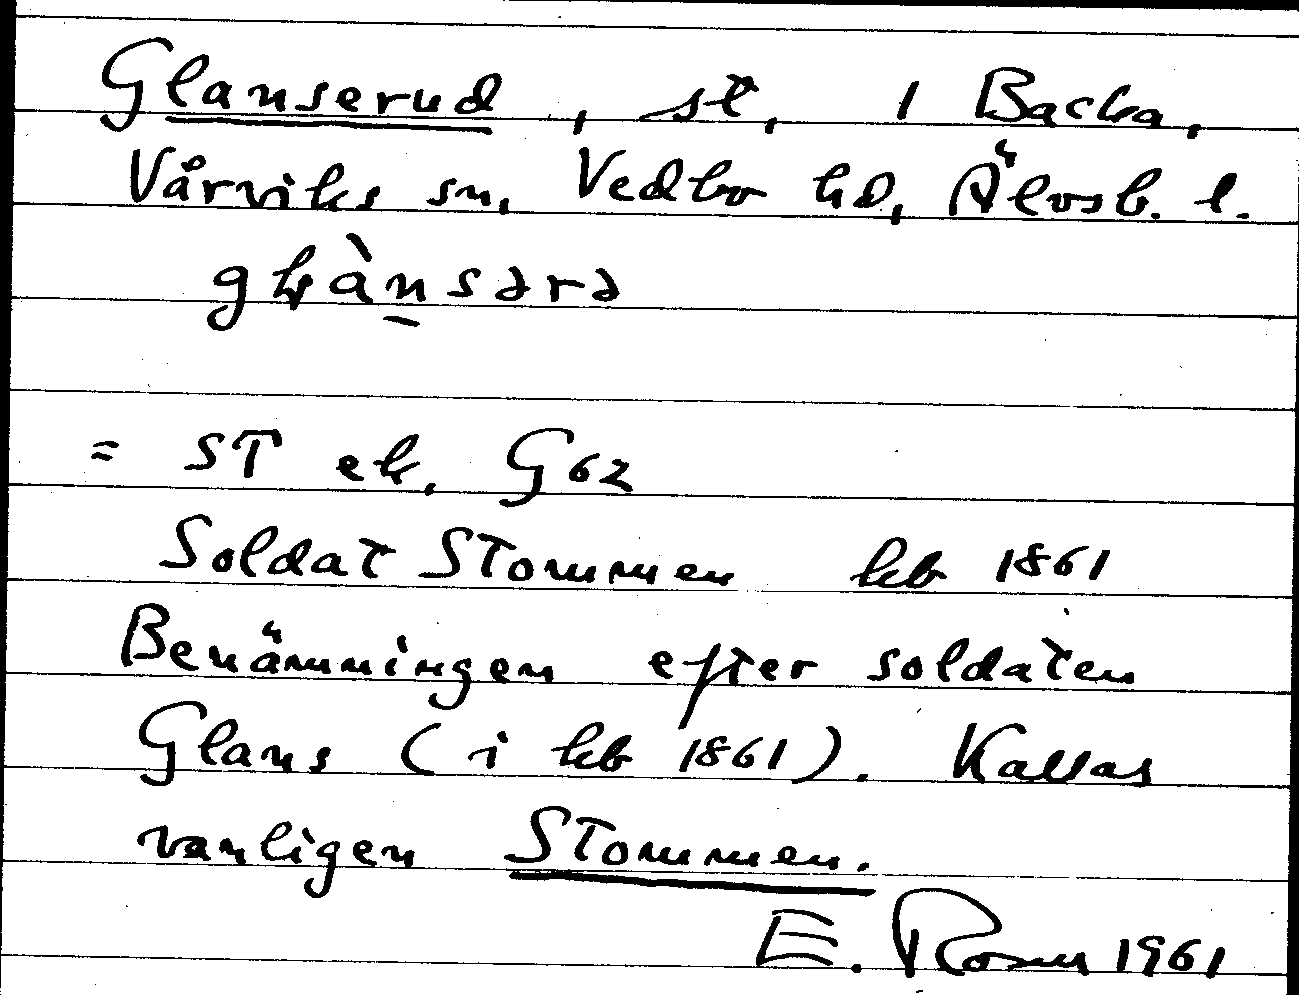 Glanserud, st, 1 Backa,
Vårviks sn, Vedbo hd, Älvsb. l.
= ST ek. G62
Soldat Stommen hfb 1861
Benämningen efter soldaten
Glans (i hfb 1861). Kallas
vanligen Stommen.
E. Rosen 1961